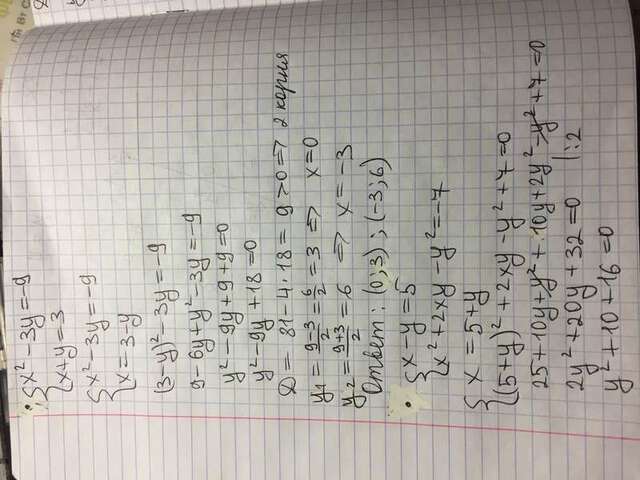 x² - 3y = -9
x + y = 3
x² - 3y = -9
x = 3 - y
(3-y)² - 3y = -9
9 - 6y + y² - 3y = -9
y² - 9y + 9 + 9 = 0
y² - 9y + 18 = 0
D = 81 - 4·18 = 9 > 0 => 2 корня
y₁ = (9-3)/2 = 6/2 = 3 => x = 0
y₂ = (9+3)/2 = 6 => x = -3
Ответ: (0;3); (-3;6)
x - y = 5
x² + 2xy - y² = -7
x = 5 + y
(5+y)² + 2xy - y² + 7 = 0
25 + 10y + y² + 10y + 2y² - y² + 7 = 0
2y² + 20y + 32 = 0 |:2
y² + 10 + 16 = 0